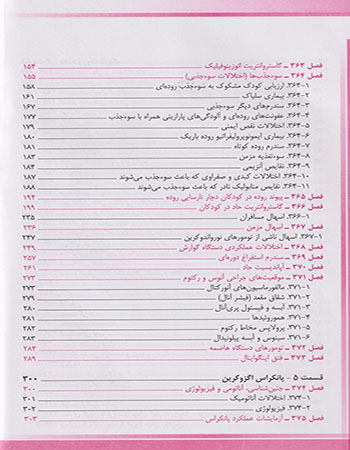 فصل ۳۶۳ ـ گاستروآنتریت ائوزینوفیلیک ۱۵۴
فصل ۳۶۴ ـ سوءجذب‌ها (اختلالات سوءجذبی) ۱۵۵
۱-۳۶۴. ارزیابی کودک مشکوک به سوءجذب روده‌ای ۱۵۸
۲-۳۶۴. بیماری سلیاک ۱۶۱
۳-۳۶۴. سندرم‌های دیگر سوءجذبی ۱۶۷
۴-۳۶۴. عفونت‌های روده‌ای و آلودگی‌های پارازیتی همراه با سوءجذب ۱۷۷
۵-۳۶۴. اختلالات نقص ایمنی ۱۷۹
۶-۳۶۴. بیماری ایمونوپرولیفراتیو روده باریک ۱۸۰
۷-۳۶۴. سندروم روده کوتاه ۱۸۱
۸-۳۶۴. سوءتغذیه مزمن ۱۸۳
۹-۳۶۴. نقایص آنزیمی ۱۸۴
۱۰-۳۶۴. اختلالات کبدی و صفراوی که باعث سوءجذب می‌شوند ۱۸۷
۱۱-۳۶۴. نقایص متابولیک نادر که باعث سوءجذب می‌شوند ۱۸۸
فصل ۳۶۵ ـ پیوند روده در کودکان دچار نارسایی روده ۱۹۴
فصل ۳۶۶ ـ گاستروآنتریت حاد در کودکان ۱۹۹
۱-۳۶۶. اسهال مسافران ۲۳۵
فصل ۳۶۷ ـ اسهال مزمن ۲۳۶
۱-۳۶۷. اسهال ناشی از تومورهای نورواندوکرین ۲۴۷
فصل ۳۶۸ ـ اختلالات عملکردی دستگاه گوارش ۲۴۹
فصل ۳۶۹ ـ سندرم استفراغ دوره‌ای ۲۵۷
فصل ۳۷۰ ـ آپاندیسیت حاد ۲۶۱
فصل ۳۷۱ ـ موقعیت‌های جراحی آنوس و رکتوم ۲۷۲
۱-۳۷۱. مالفورماسیون‌های آنورکتال ۲۷۲
۲-۳۷۱. شقاق مقعد (فیشر آنال) ۲۷۹
۳-۳۷۱. آبسه و فیستول پری‌آنال ۲۸۰
۴-۳۷۱. هموروئیدها ۲۸۱
۵-۳۷۱. پرولاپس مخاط رکتوم ۲۸۲
۶-۳۷۱. سینوس و آبسه پیلونیدال ۲۸۳
فصل ۳۷۲ ـ تومورهای دستگاه هاضمه ۲۸۴
فصل ۳۷۳ ـ فتق اینگواینال ۲۸۹
قسمت ۵ ـ پانکراس اگزوکرین ۳۰۰
فصل ۳۷۴ ـ جنین‌شناسی، آناتومی و فیزیولوژی ۳۰۰
۱-۳۷۴. اختلالات آناتومیک ۳۰۱
۲-۳۷۴. فیزیولوژی ۳۰۲
فصل ۳۷۵ ـ آزمایشات عملکرد پانکراس ۳۰۳